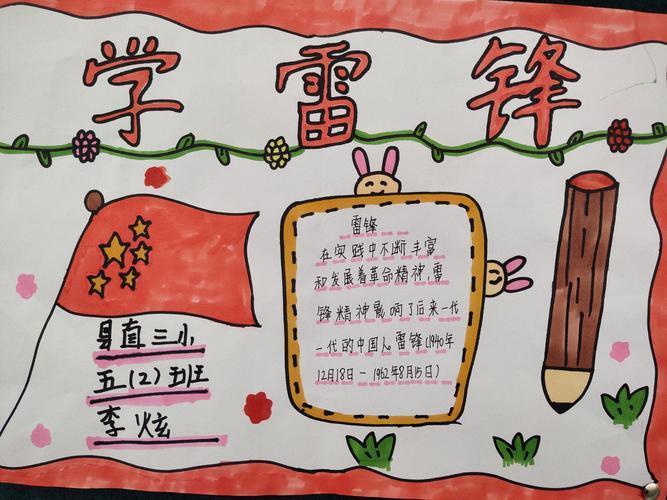 学雷锋
雷锋
在实践中不断丰富
和发展着革命精神,雷
锋精神影响了后来一代
一代的中国人。雷锋(1940年
12月18日-1962年8月15日)
县直三小
五(2)班
李炫